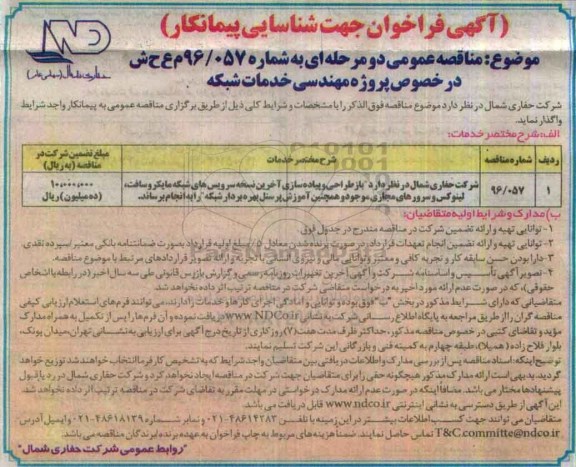 (آگهی فراخوان جهت شناسایی پیمانکار)
موضوع: مناقصه عمومی دو مرحله ای به شماره ۹۶/۰۵۷ م ع ح ش
در خصوص پروژه مهندسی خدمات شبکه
شرکت حفاری شمال در نظر دارد موضوع مناقصه فوق الذکر را با مشخصات و شرایط کلی ذیل از طریق برگزاری مناقصه عمومی به پیمانکار واجد شرایط
واگذار نماید.
الف: شرح مختصر خدمات:
ردیف شماره مناقصه شرح مختصر خدمات مبلغ تضمین شرکت در مناقصه (به ریال)
۱ ۹۶/۰۵۷ شرکت حفاری شمال در نظر دارد "باز طراحی و پیاده سازی آخرین نسخه سرویس های شبکه مایکروسافت، ۱۰,۰۰۰,۰۰۰
لینوکس و سرورهای مجازی موجود و همچنین آموزش پرسنل بهره بردار شبکه" را به انجام برساند. (ده میلیون) ریال
ب) مدارک و شرایط اولیه متقاضیان:
۱- توانایی تهیه و ارائه تضمین شرکت در مناقصه مندرج در جدول فوق
۲- توانایی تهیه و ارائه تضمین انجام تعهدات قرارداد، در صورت برنده شدن معادل ۵٪ مبلغ اولیه قرارداد بصورت ضمانتنامه بانکی معتبر یا سپرده نقدی
۳- دارا بودن حسن سابقه کار و تجربه کافی و معتبر
مرتبط با موضوع مناقصه.
۴- تصویر آگهی تأسیس و اساسنامه شرکت و آگهی آخرین تغییرات روزنامه رسمی و گزارش بازرس قانونی طی سه سال اخیر (در رابطه با اشخاص
حقوقی)، که در صورت عدم ارائه مورد اخیر به درخواست متقاضی شرکت در مناقصه ترتیب اثر داده نخواهد شد.
متقاضیانی که دارای شرایط مذکور در بخش "ب" فوق بوده و توانایی و آمادگی اجرای کارها و خدمات را دارند، می توانند فرم های استعلام ارزیابی کیفی
مناقصه گران را از طریق مراجعه به پایگاه اطلاع رسانی شرکت به نشانی www.NDCo.ir دریافت نموده و آن فرم ها را پس از تکمیل به همراه مدارک
مؤید و تقاضای کتبی در خصوص مناقصه مذکور، حداکثر ظرف مدت هفت (۷) روز کاری از تاریخ درج آگهی برای ارزیابی به نشانی تهران، میدان پونک،
بلوار فلاح زاده (همیلا)، طبقه چهارم به کمیته فنی و بازرگانی این شرکت تسلیم نمایند.
توضیح اینکه: اسناد مناقصه پس از بررسی مدارک و اطلاعات دریافتی بین متقاضیان واجد شرایط که به تشخیص کارفرما انتخاب خواهند شد توزیع خواهد
گردید. بدیهی است ارائه مدارک مذکور هیچگونه حقی را برای متقاضیان جهت شرکت در مناقصه ایجاد نخواهد کرد و شرکت حفاری شمال در رد یا قبول
پیشنهادها مختار می باشد. مضافا اینکه در صورت عدم ارائه مدارک درخواستی در مهلت مقرر به تقاضای شرکت در مناقصه ترتیب اثر داده نخواهد شد.
این آگهی از طریق دسترسی به نشانی اینترنتی www.ndco.ir قابل دریافت می باشد.
متقاضیان می توانند جهت کسب اطلاعات بیشتر در این زمینه با تلفن ۴۸۶۱۴۳۸۳-۰۲۱ و نمابر شماره ۴۸۶۱۸۱۳۹-۰۲۱ و ایمیل آدرس
T&C.committe@ndco.ir تماس حاصل نمایند. ضمنا هزینه های مربوط به چاپ فراخوان به عهده برنده/برندگان مناقصه می باشد.
"روابط عمومی شرکت حفاری شمال"